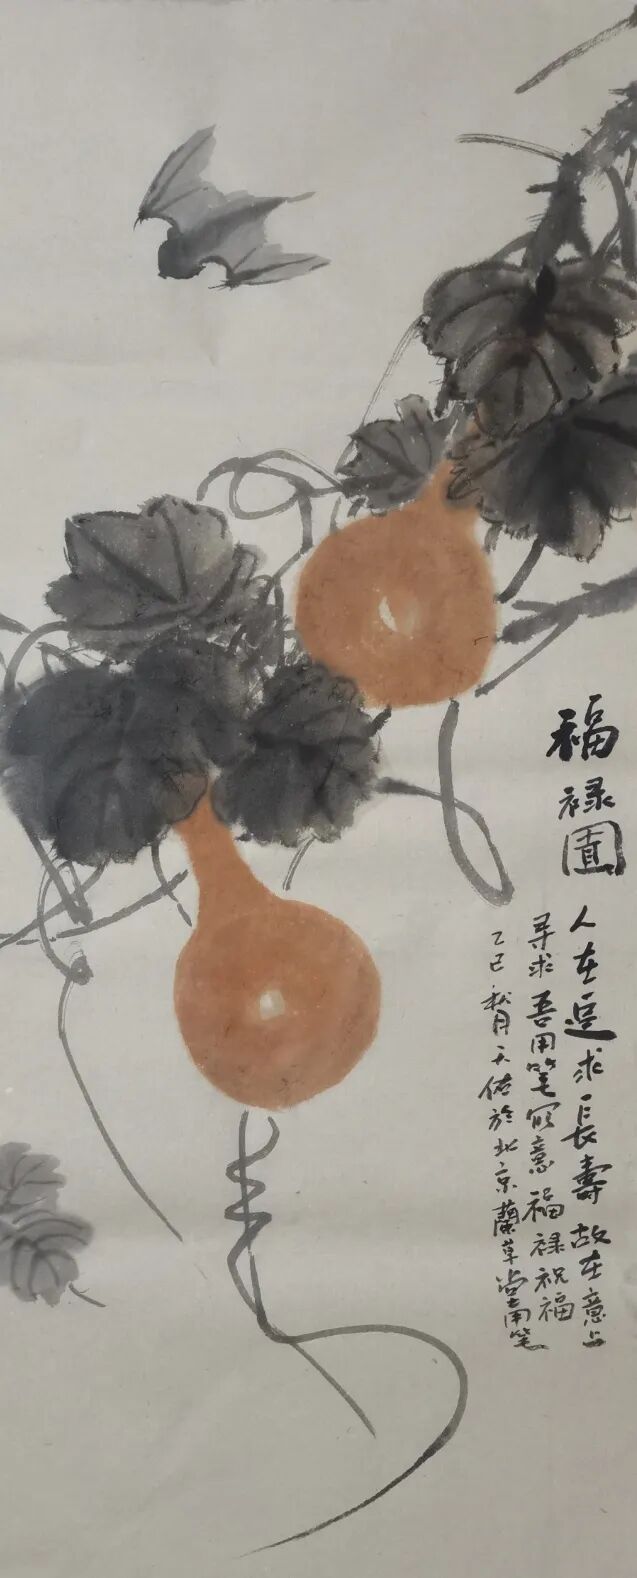 福禄圖
人在追求長壽故在意上
寻求吾用笔写意福禄祝福
乙巳秋月天佑於北京蘭草堂南笔